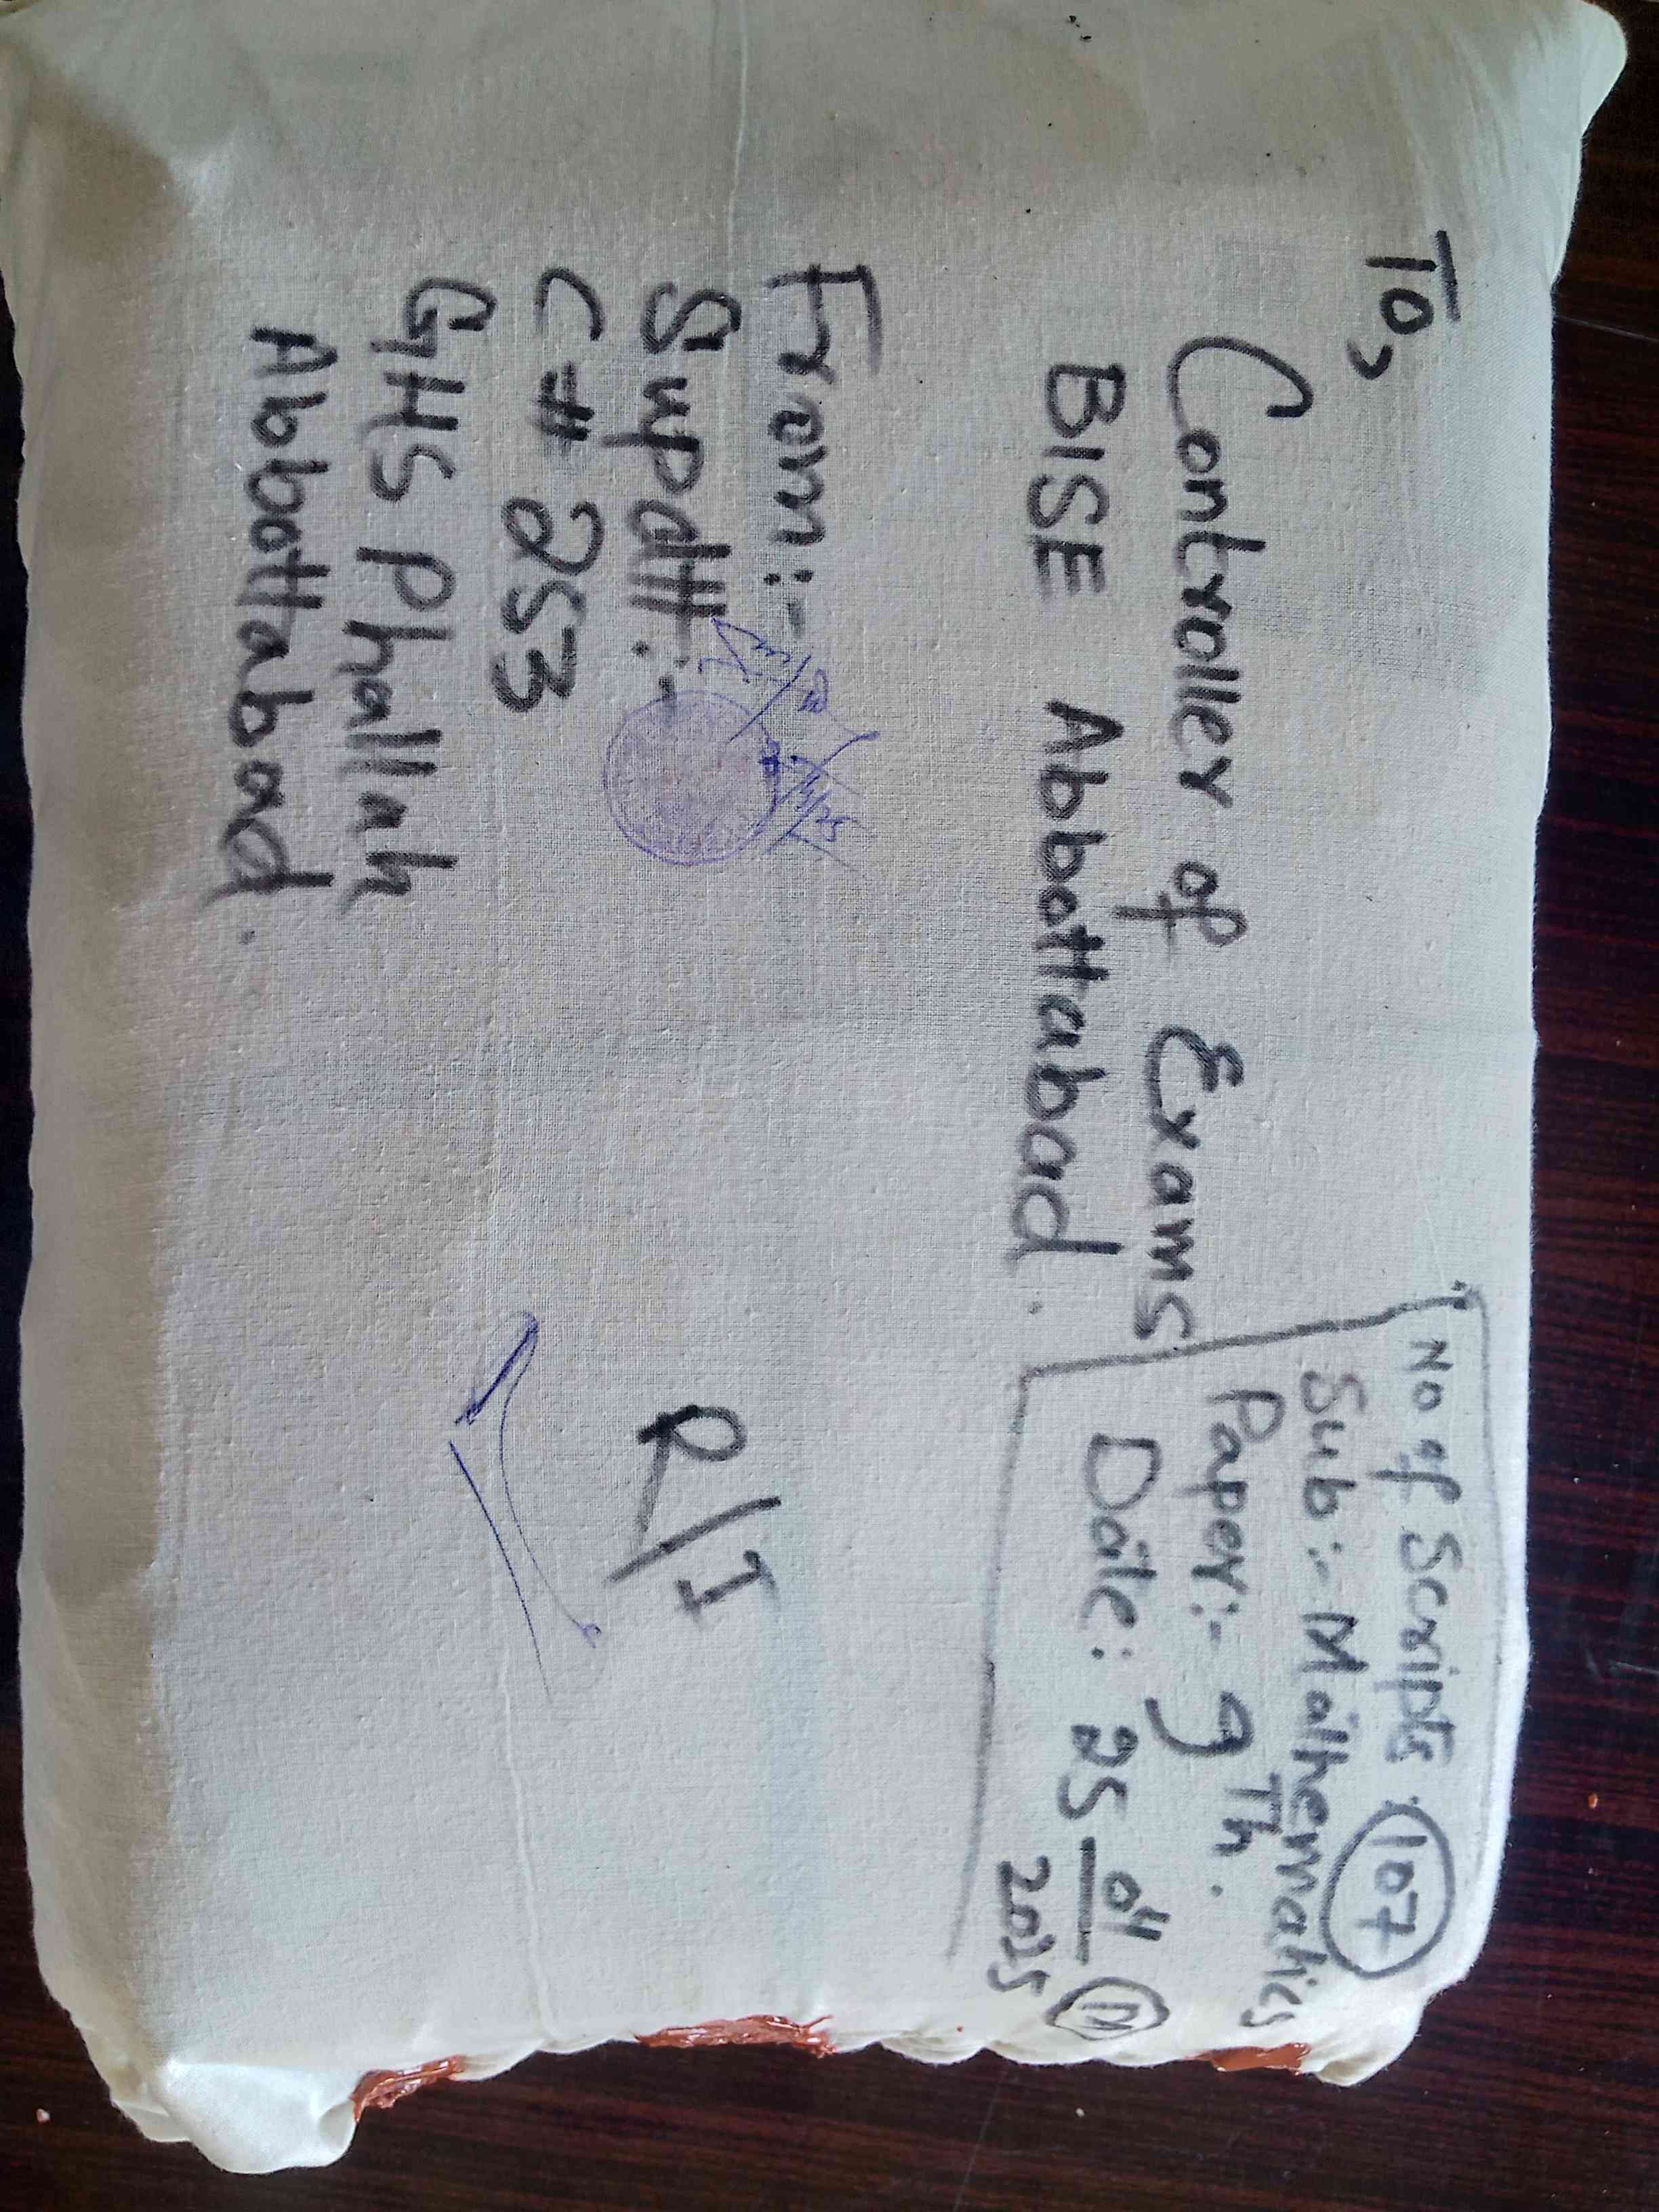 To,
Controller of Exams
BISE Abbottabad.
No of Scripts: 107
Sub:- Mathematics
Paper:- 9Th.
Date: 25-04 (M)
2025
From:-
Supdtt:-
C# 253
GHS Phallah
Abbottabad.
R/I